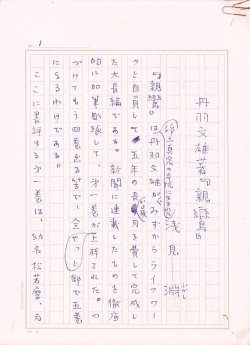 No. 1
丹羽文雄著『親鸞』
浅見淵
『親鸞』は丹羽文雄がみずからライフワー
クと自負して、五年の長月を費して完成し
た大長編である。新聞に連載したものを徹底
的に加筆彫琢して、第一巻が上梓された。つ
づけてもう四巻出る筈で、全部で五巻
になるわけである。
ここに書評する第一巻は、幼名松若麿、九